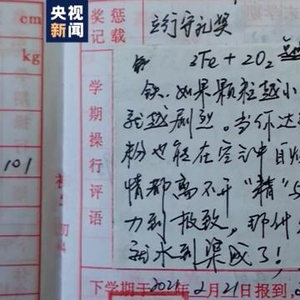 央视新闻
cm
kg
101
奖惩记载
学期操行评语
言行守礼奖
3Fe + 2O₂
铁,如果颗粒越小
就越剧烈。当你达
粉也能在空气中自燃
情都离不开“精”
力到极致,那什
就水到渠成了!
下学期于2021年2月21日报到